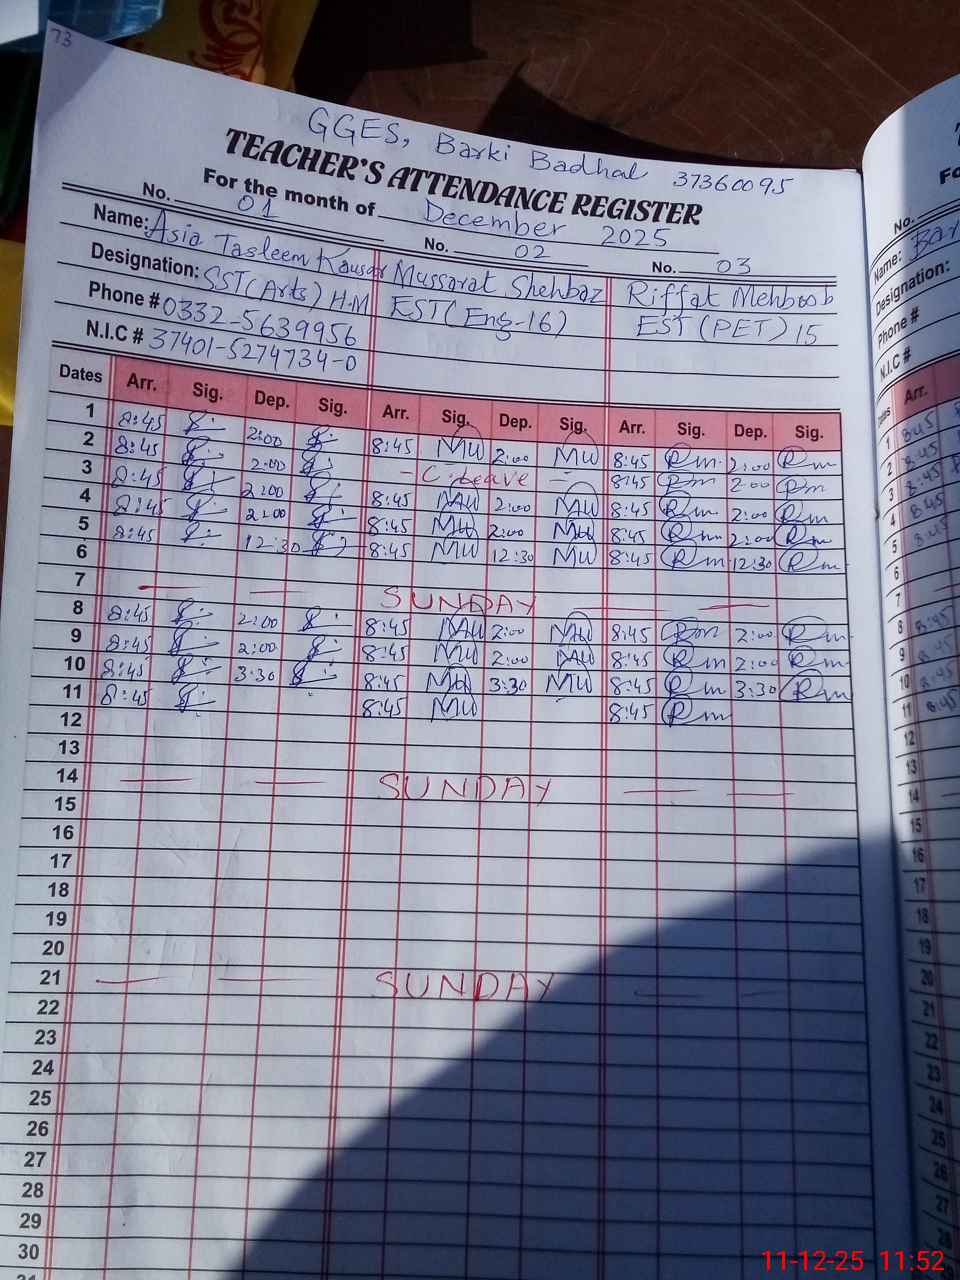 73
GGES, Barki Badhal 37360095
TEACHER'S ATTENDANCE REGISTER
For the month of December 2025
No. 01 No. 02 No. 03
Name: Asia Tasleem Kausar Mussarat Shehbaz Riffat Mehboob
Designation: SST(Arts) H-M EST(Eng-16) EST(PET) 15
Phone # 0332-5639956
N.I.C # 37401-5274734-0
Dates Arr. Sig. Dep. Sig. Arr. Sig. Dep. Sig. Arr. Sig. Dep. Sig.
1 8:45 2:00 8:45 Mu 2:00 Mu 8:45 Rm 2:00 Rm
2 8:45 2:00 - C.Leave - 8:45 Rm 2:00 Rm
3 8:45 2:00 8:45 Mu 2:00 Mu 8:45 Rm 2:00 Rm
4 8:45 2:00 8:45 Mu 2:00 Mu 8:45 Rm 2:00 Rm
5 8:45 12:30 8:45 Mu 12:30 Mu 8:45 Rm 12:30 Rm
6
7 — — SUNDAY — —
8 8:45 2:00 8:45 Mu 2:00 Mu 8:45 Rm 2:00 Rm
9 8:45 2:00 8:45 Mu 2:00 Mu 8:45 Rm 2:00 Rm
10 8:45 3:30 8:45 Mu 3:30 Mu 8:45 Rm 3:30 Rm
11 8:45 8:45 Mu 8:45 Rm
12
13
14 — — SUNDAY — —
15
16
17
18
19
20
21 — — SUNDAY — —
22
23
24
25
26
27
28
29
30
31
No.
Name:
Designation:
Phone #
N.I.C #
Arr.
1 8:45
2 8:45
3 8:45
4 8:45
5 8:45
6
7
8 8:45
9 8:45
10 8:45
11 8:45
12
13
14
15
16
17
18
19
20
21
22
23
24
25
26
27
28
11-12-25 11:52